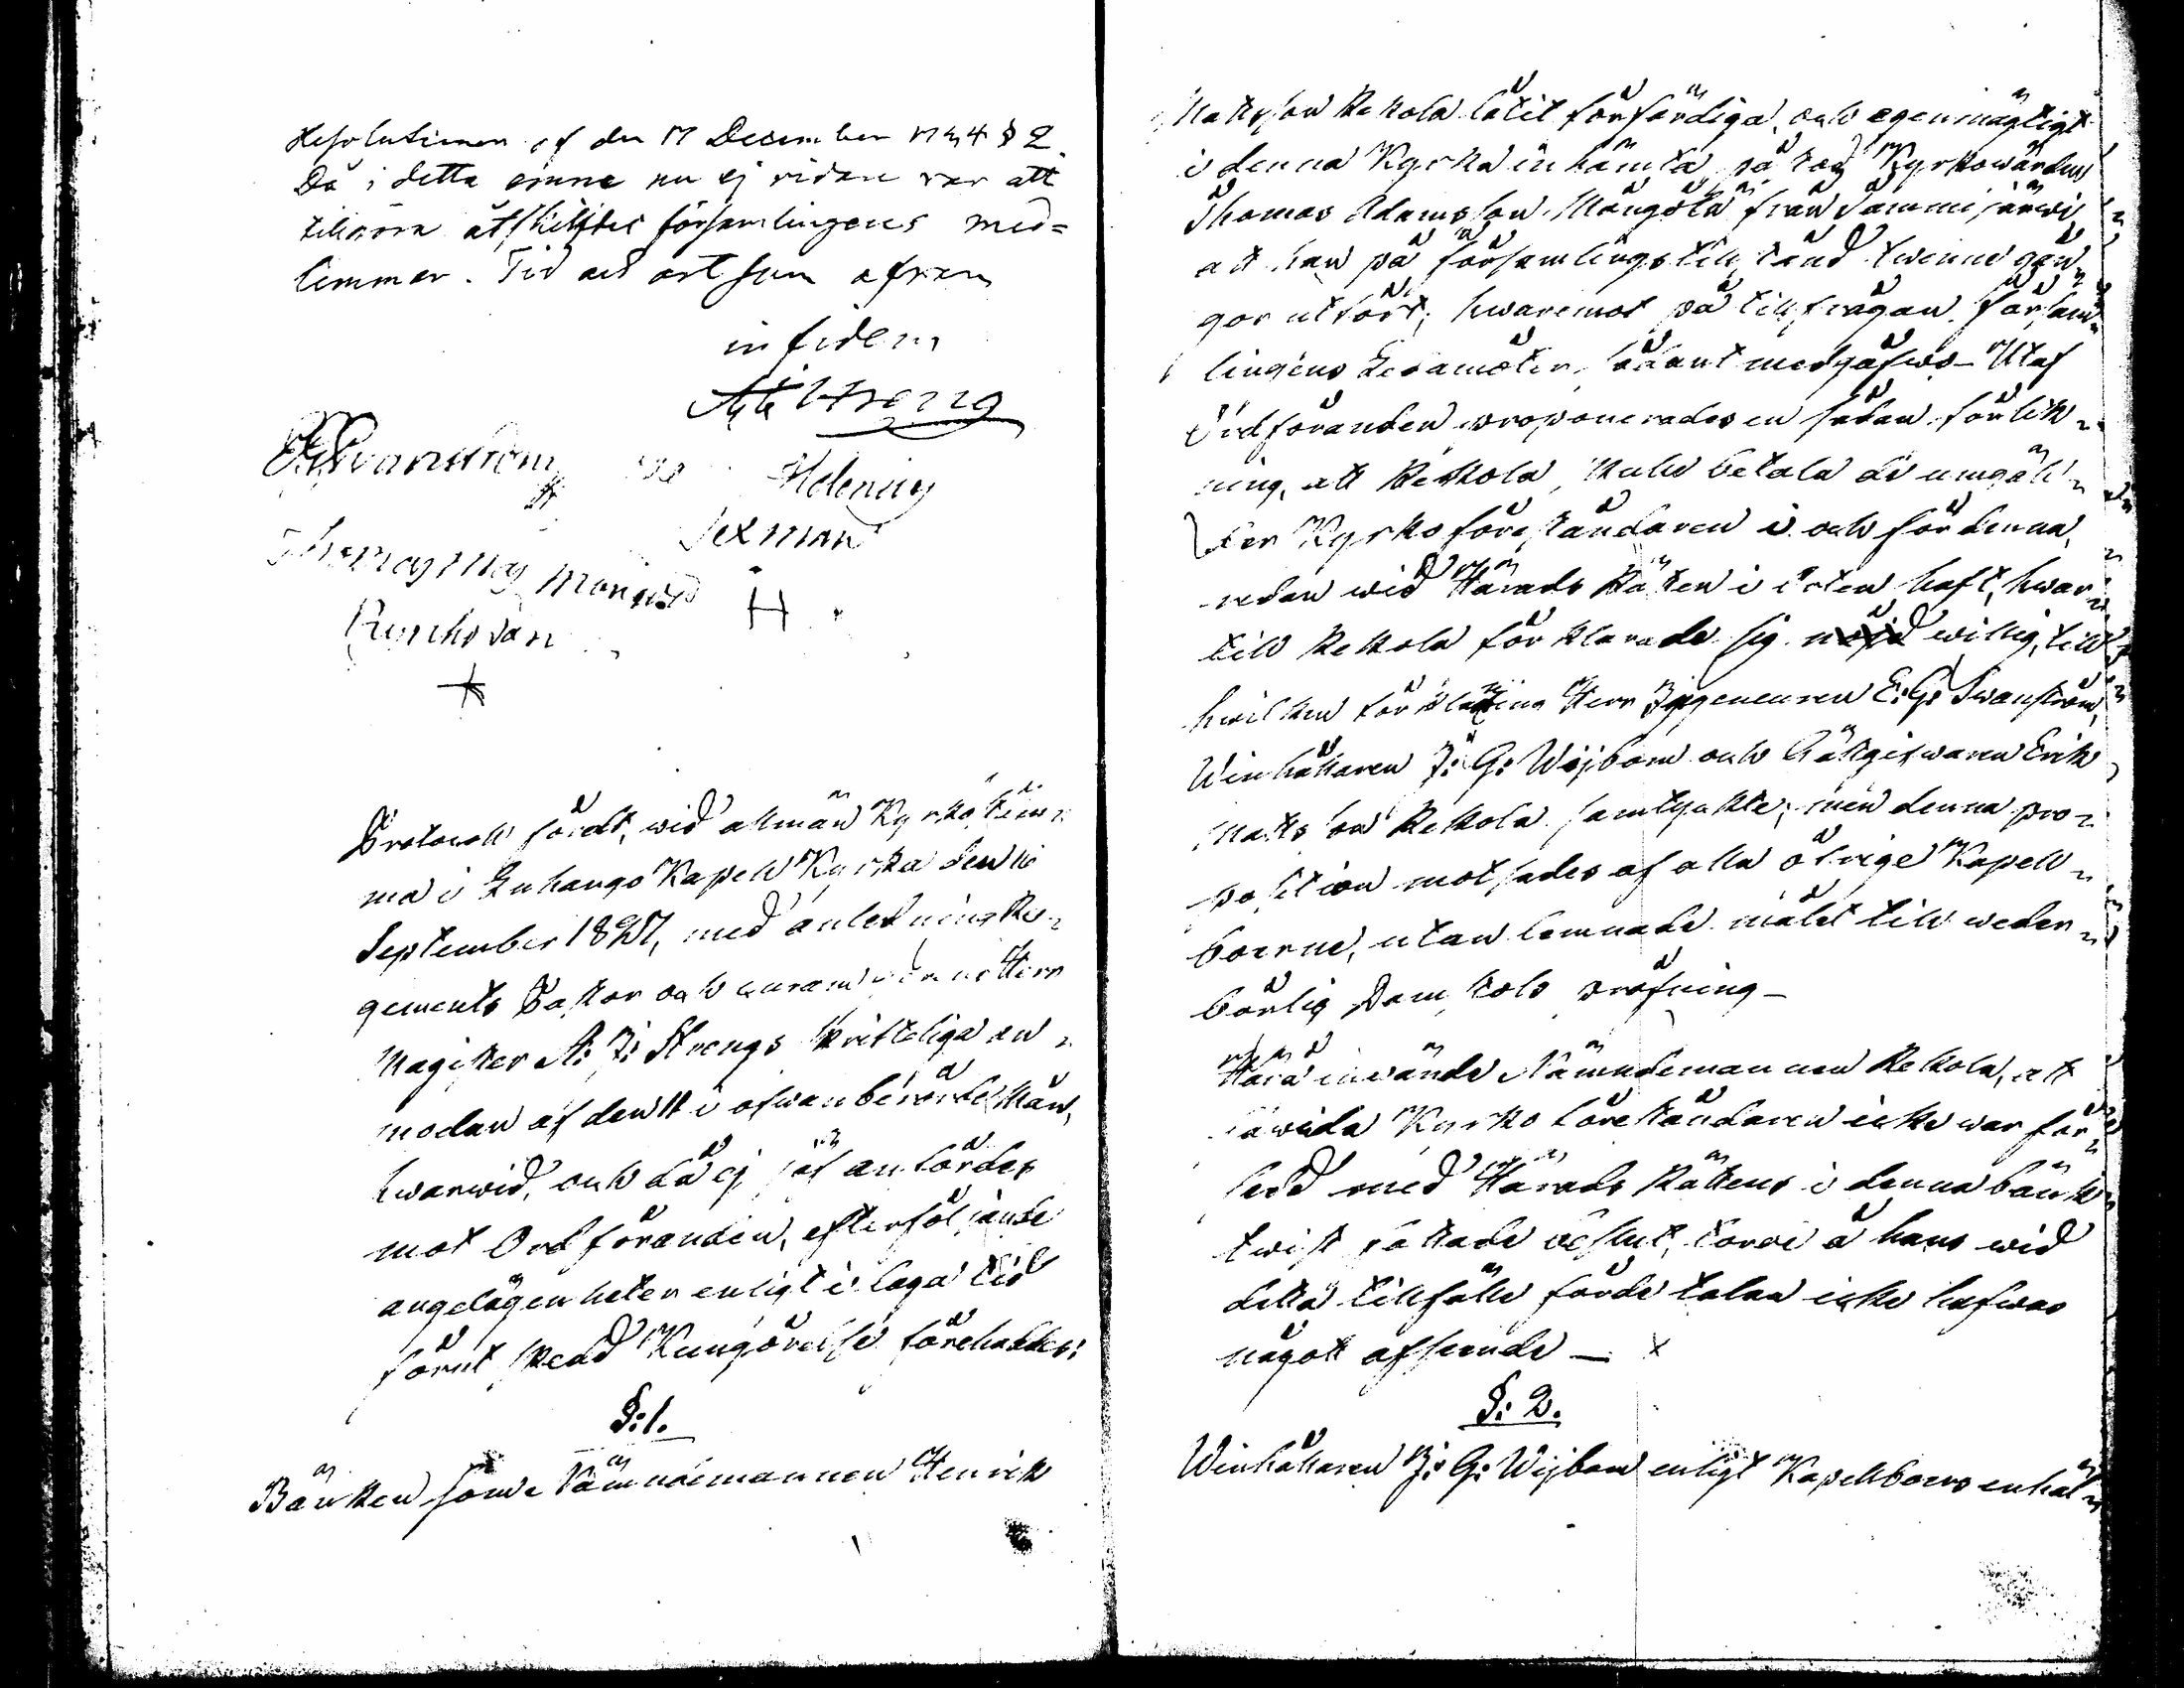 Resolutionen af den 17 December 1724 § 2
Då i detta ämne nu ej vidare var att
tillgöra åtskilldes församlingens med=
lemmar. Tid och ort som ofvan
in fidem
Streng
Swanström Helenius
Sexman
Thomas Mats Mångs
H
Protocoll fördt, wid allmän Kyrkostäm=
ma i Luhango Kapell Kyrka den 16
September 1827, med anledning Re=
gements Pastor och Herr
Magister A: J: Strengs skrifteliga an=
modan af den 11 i ofwanberörde Mån,
hwarwid, och då ej jäf anfördes
mot Ordföranden, efterföljande
angelägenheter enligt i laga tid
förut skedd Kungörelse förehades:
§: 1.
Bänken som Nämndemannen Henrik
Mattsson Rekola låtit förfärdiga, och egenmägtigt
i denna Kyrka inhämta, på stod Kyrkowärden
Thomas Adamsson Mångola från Tammijärwi,
att han på församlingstillstånd twenne gån=
gor utfört; hwaremot på tillfrågan, försam=
lingens Ledamöter, sådant medgåfwo - Utaf
Ordföranden proponerades en sådan förlik=
ning, att Rekola skulle betala de umgäll=
der Kyrkoföreståndaren i och för denna,
redan wid Härads Rätten i twisten haft, hwar=
till Rekola förklarade sig willig, till
hwilken förklaring Herr Ingeneuren E: G: Swanström,
Winhållaren J: G: Wijbom och Gästgifwaren Erik
Matsson Rekola samtyckte; men denna pro=
position motsades af alla öfrige Kapell=
boerne, utan lemnade målet till weder=
börlig Domstols pröfning -
Härå inwände Nämndemannen Rekola, att
såwida Kyrko Föreståndaren icke war för=
sedd med Härads Rättens i denna bänk=
twist fattade beslut, torde å hans wid
detta tillfälle förde talan icke hafwas
något afseende - x
§: 2.
Winhållaren J: G: Wijbom enligt Kapellboers enhäl=